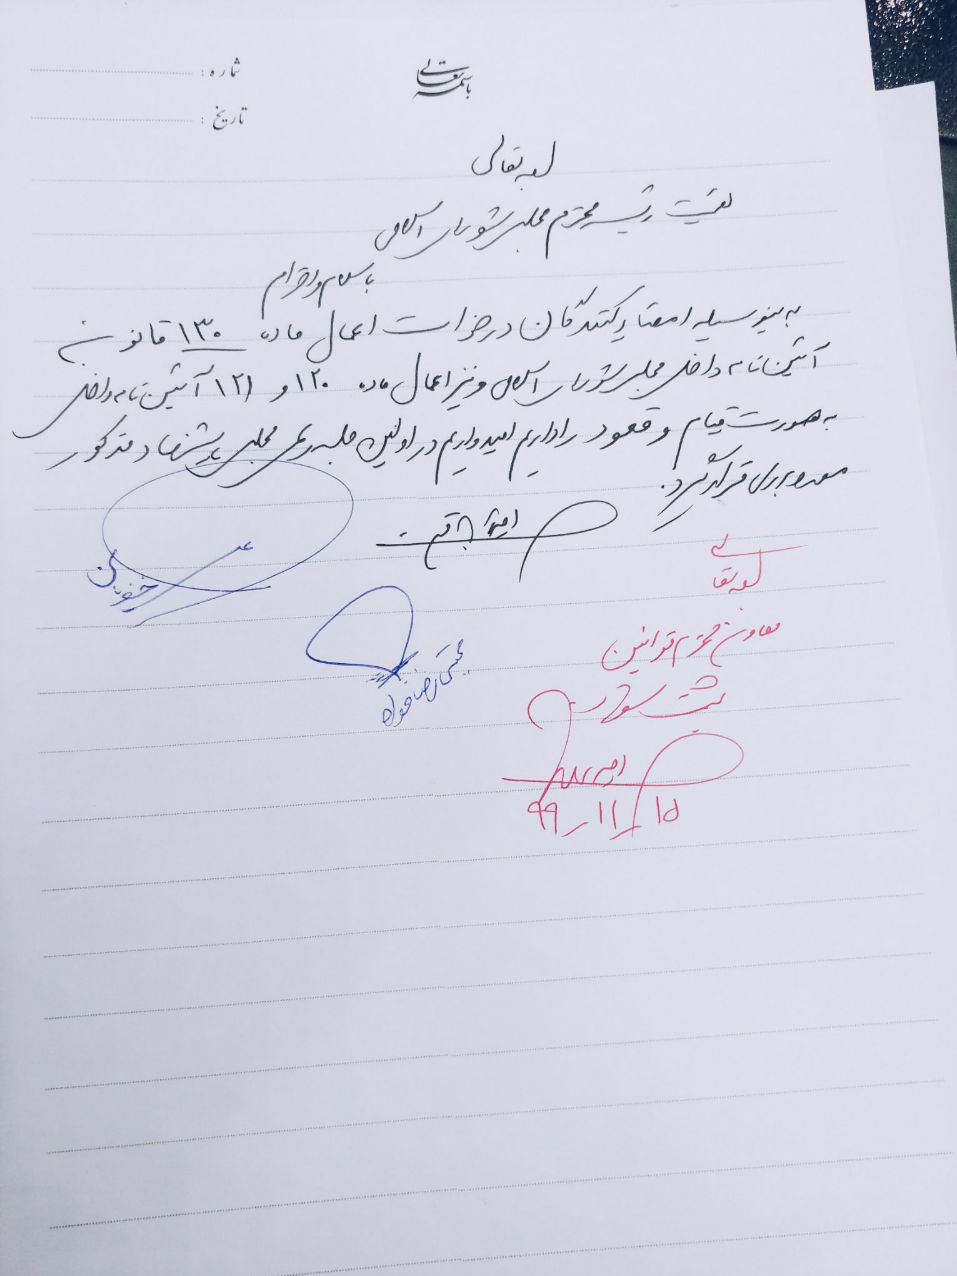 باسمه تعالی
شماره :
تاریخ :
بسمه تعالی
ریاست محترم مجلس شورای اسلامی
با سلام و احترام
به اینوسیله امضاء کنندگان درخواست اعمال ماده ۱۳۰ قانون
آئین نامه داخلی مجلس شورای اسلامی و نیز اعمال ماده ۱۲۰ و ۱۲۱ آئین نامه داخلی
به صورت قیام و قعود را داریم امیدواریم در اولین جلسه رسمی مجلس پیشنهاد مذکور
مورد بررسی قرار گیرد.
علی خضریان
مجتبی رضاخواه
بسمه تعالی
معاون محترم قوانین
ثبت شود
۹۹/۱۱/۱۵